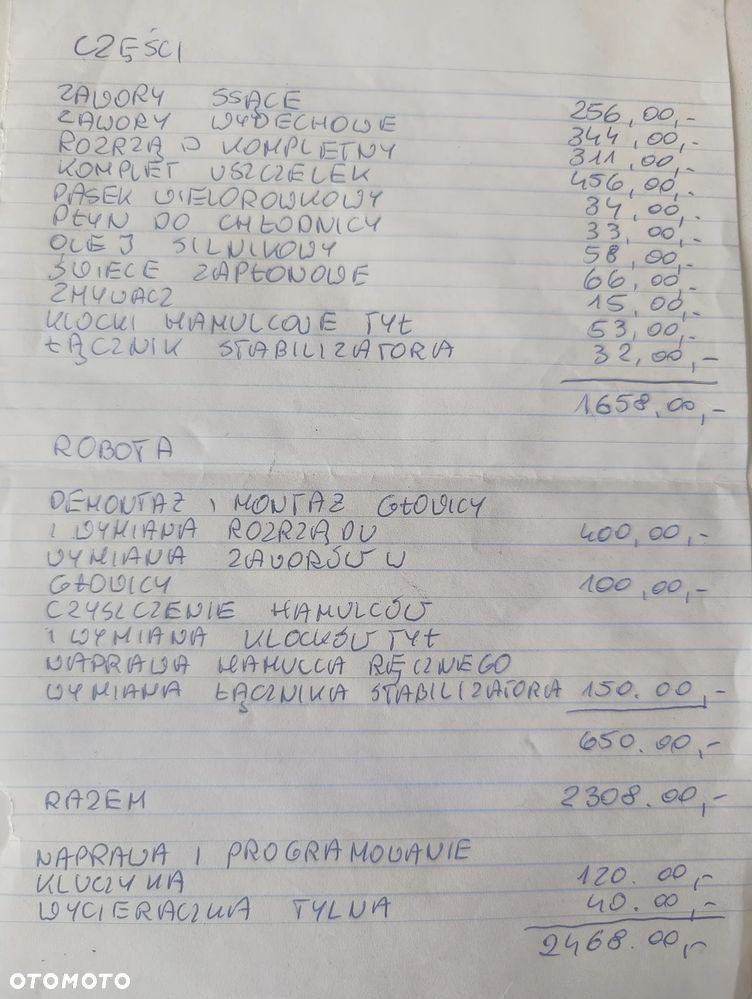 CZĘŚCI
ZAWORY SSĄCE 256,00,-
ZAWORY WYDECHOWE 344,00,-
ROZRZĄD KOMPLETNY 311,00,-
KOMPLET USZCZELEK 456,00,-
PASEK WIELOROWKOWY 34,00,-
PŁYN DO CHŁODNICY 33,00,-
OLEJ SILNIKOWY 58,00,-
ŚWIECE ZAPŁONOWE 66,00,-
ZMYWACZ 15,00,-
KLOCKI HAMULCOWE TYŁ 53,00,-
ŁĄCZNIK STABILIZATORA 32,00,-
1658,00,-
ROBOTA
DEMONTAZ I MONTAZ GŁOWICY
I WYMIANA ROZRZĄDU 400,00,-
WYMIANA ZAWORÓW W
GŁOWICY 100,00,-
CZYSZCZENIE HAMULCÓW
I WYMIANA KLOCKÓW TYŁ
NAPRAWA HAMULCA RĘCZNEGO
WYMIANA ŁĄCZNIKA STABILIZATORA 150.00,-
650.00,-
RAZEM 2308.00,-
NAPRAWA I PROGRAMOWANIE
KLUCZYKA 120.00,-
WYCIERACZKA TYLNA 40.00,-
2468.00,-
OTOMOTO